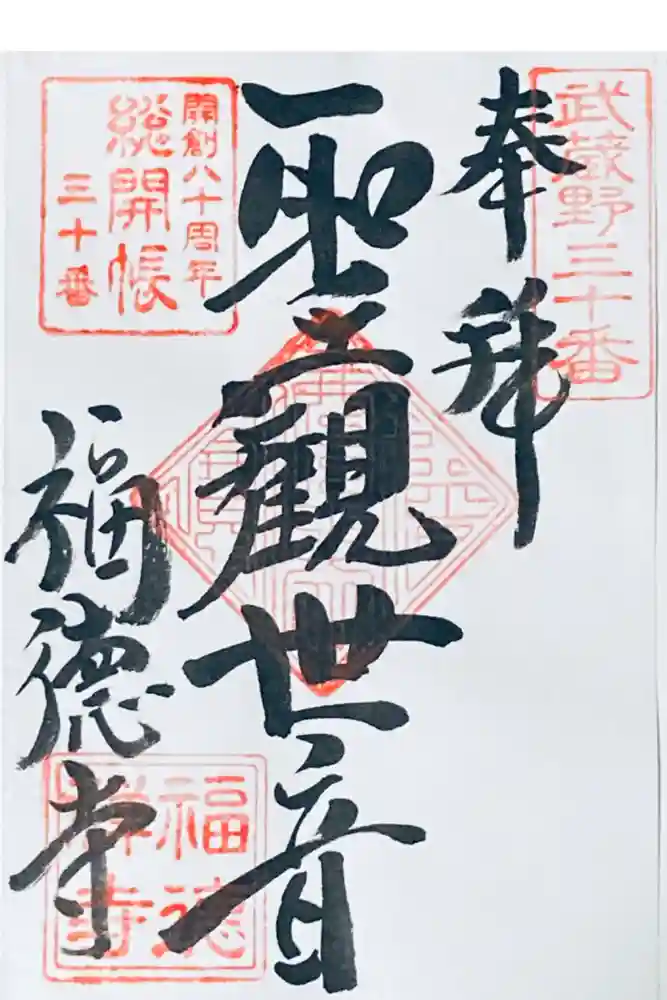 武蔵野三十番
奉拝
聖觀世音
開創八十周年
総開帳
三十番
福德寺
福德
禅寺